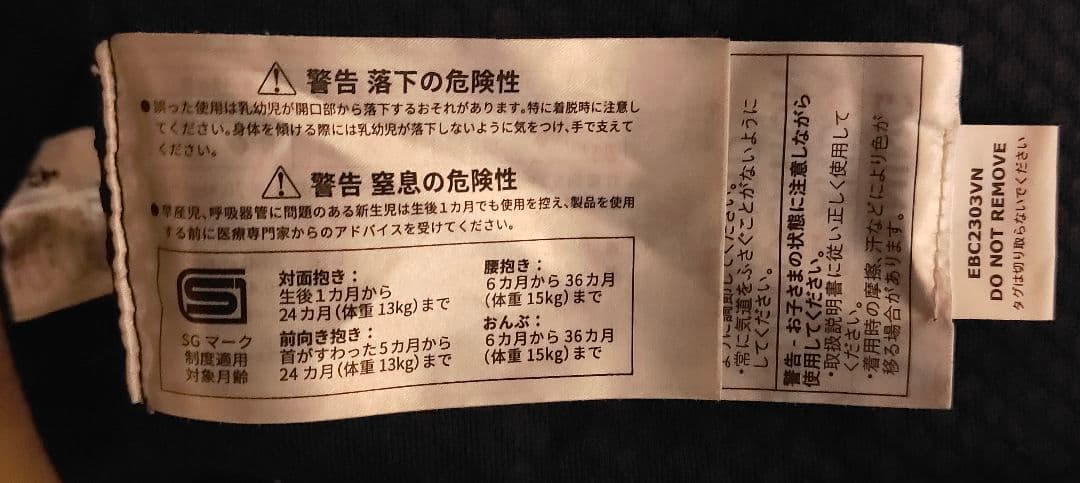 警告 落下の危険性
●誤った使用は乳幼児が開口部から落下するおそれがあります。特に着脱時に注意し
てください。身体を傾ける際には乳幼児が落下しないように気をつけ、手で支えて
ください。
警告 窒息の危険性
●早産児、呼吸器管に問題のある新生児は生後1カ月でも使用を控え、製品を使用
する前に医療専門家からのアドバイスを受けてください。
SG マーク
制度適用
対象月齢
対面抱き：
生後1カ月から
24カ月(体重13kg)まで
前向き抱き：
首がすわった5カ月から
24カ月(体重13kg)まで
腰抱き：
6カ月から36カ月
(体重15kg)まで
おんぶ：
6カ月から36カ月
(体重15kg)まで
ように調節してください。
・常に気道をふさぐことがないように
してください。
警告 - お子さまの状態に注意しながら
使用してください。
・取扱説明書に従い正しく使用して
ください。
・着用時の摩擦、汗などにより色が
移る場合があります。
EBC2303VN
DO NOT REMOVE
タグは切り取らないでください